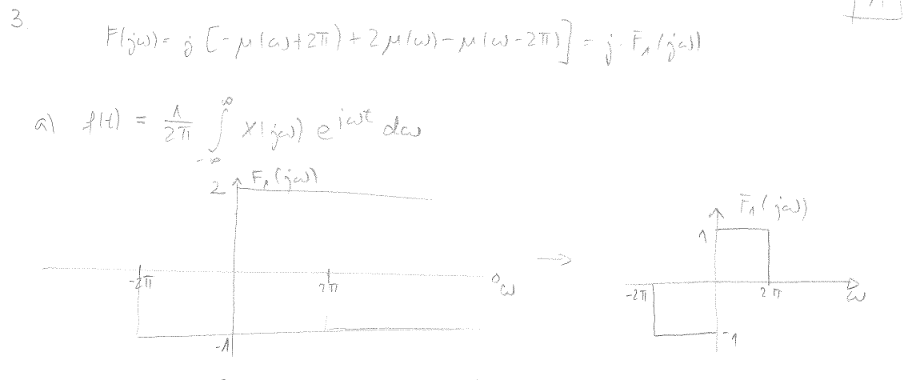 3.
F(jω) = j [-μ(ω+2π) + 2μ(ω) - μ(ω-2π)] = j · F₁(jω)
a) f(t) = 1/2π ∫_{-∞}^{∞} X(jω) e^{jωt} dω
2 F₁(jω)
F₁(jω)
1
-2π 2π ω → -2π 2π ω
-1 -1